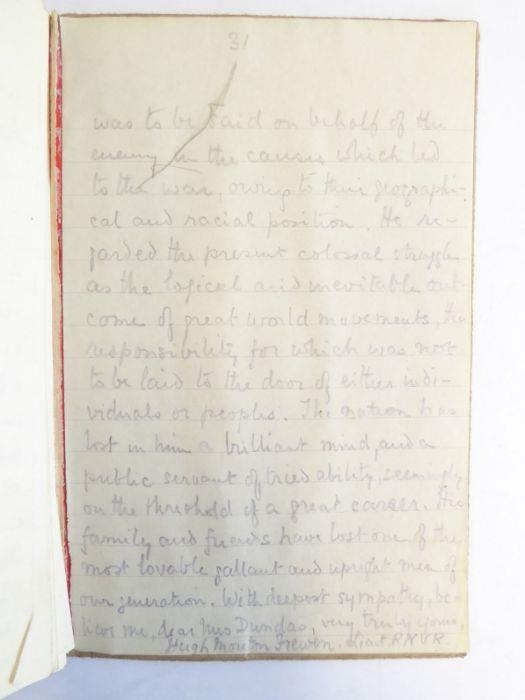 31
was to be said on behalf of the
enemy in the causes which led
to the war, owing to their geographi-
cal and racial position. He re-
garded the present colossal struggle
as the logical and inevitable out-
come of great world movements, the
responsibility for which was not
to be laid to the door of either indi-
viduals or peoples. The nation has
lost in him a brilliant mind, and a
public servant of tried ability, seemingly
on the threshold of a great career. His
family and friends have lost one of the
most lovable gallant and upright men of
our generation. With deepest sympathy, be-
lieve me, dear Mrs Dundas, very truly yours,
Hugh Moreton Frewen. Lieut R.N.V.R.